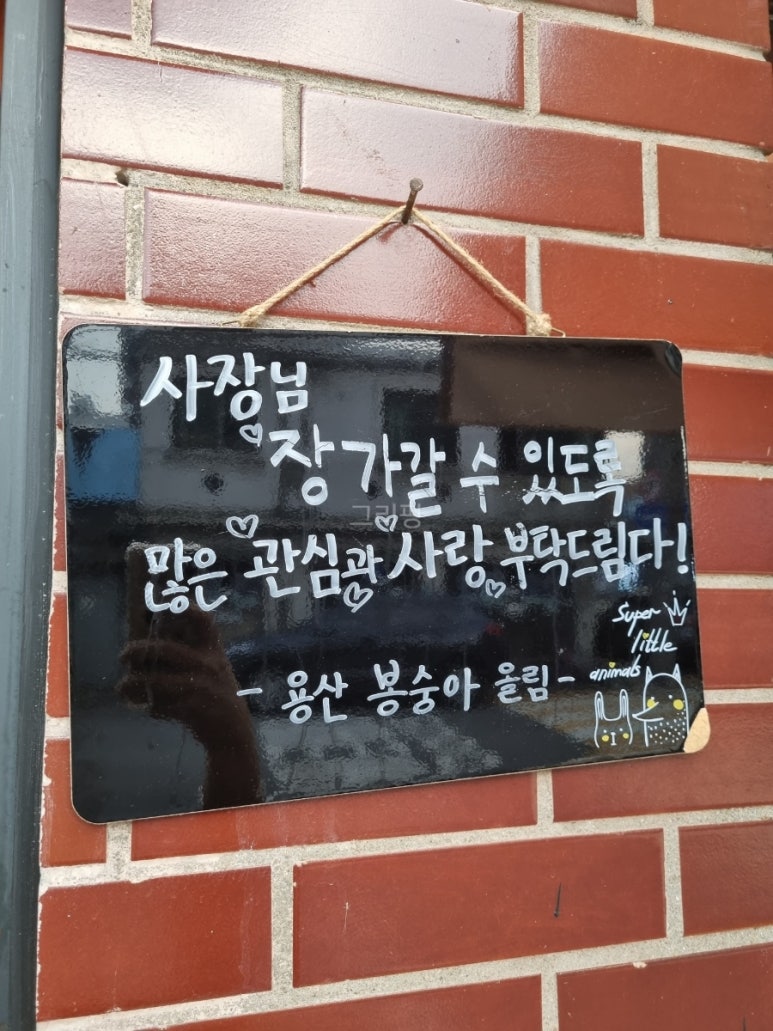 사장님
장가갈 수 있도록
그리핑
많은 관심과 사랑 부탁드림다!
Super
little
animals
- 용산 봉숭아 올림 -